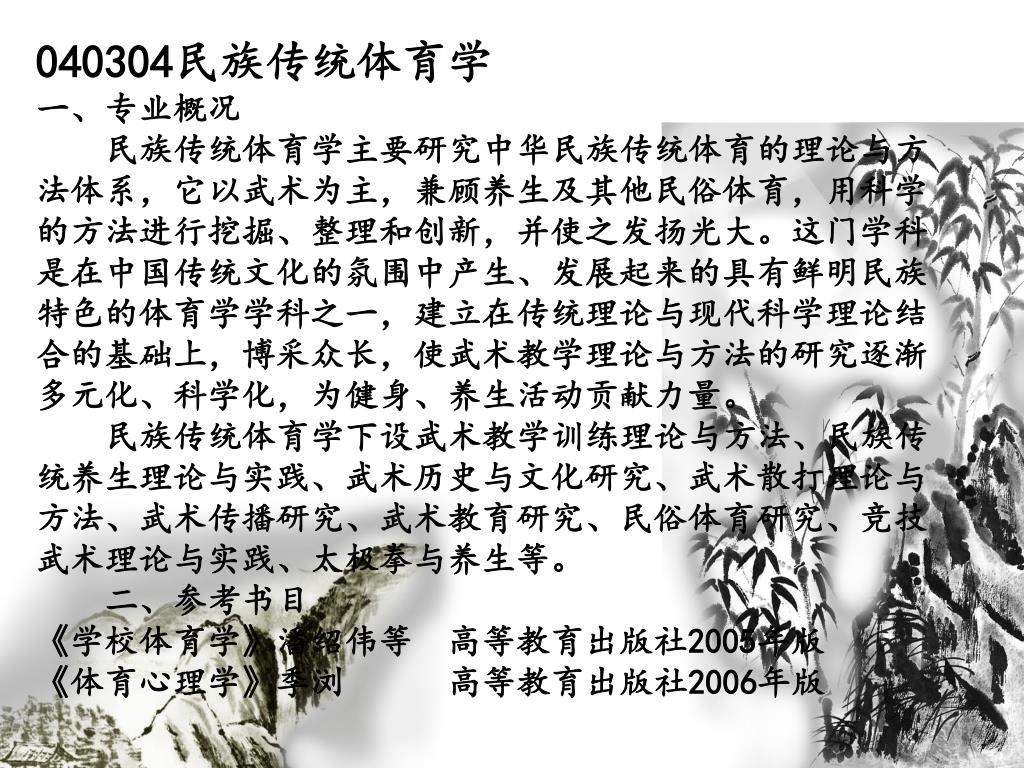 040304民族传统体育学
一、专业概况
民族传统体育学主要研究中华民族传统体育的理论与方
法体系，它以武术为主，兼顾养生及其他民俗体育，用科学
的方法进行挖掘、整理和创新，并使之发扬光大。这门学科
是在中国传统文化的氛围中产生、发展起来的具有鲜明民族
特色的体育学学科之一，建立在传统理论与现代科学理论结
合的基础上，博采众长，使武术教学理论与方法的研究逐渐
多元化、科学化，为健身、养生活动贡献力量。
民族传统体育学下设武术教学训练理论与方法、民族传
统养生理论与实践、武术历史与文化研究、武术散打理论与
方法、武术传播研究、武术教育研究、民俗体育研究、竞技
武术理论与实践、太极拳与养生等。
二、参考书目
《学校体育学》潘绍伟等 高等教育出版社2005年版
《体育心理学》季浏 高等教育出版社2006年版